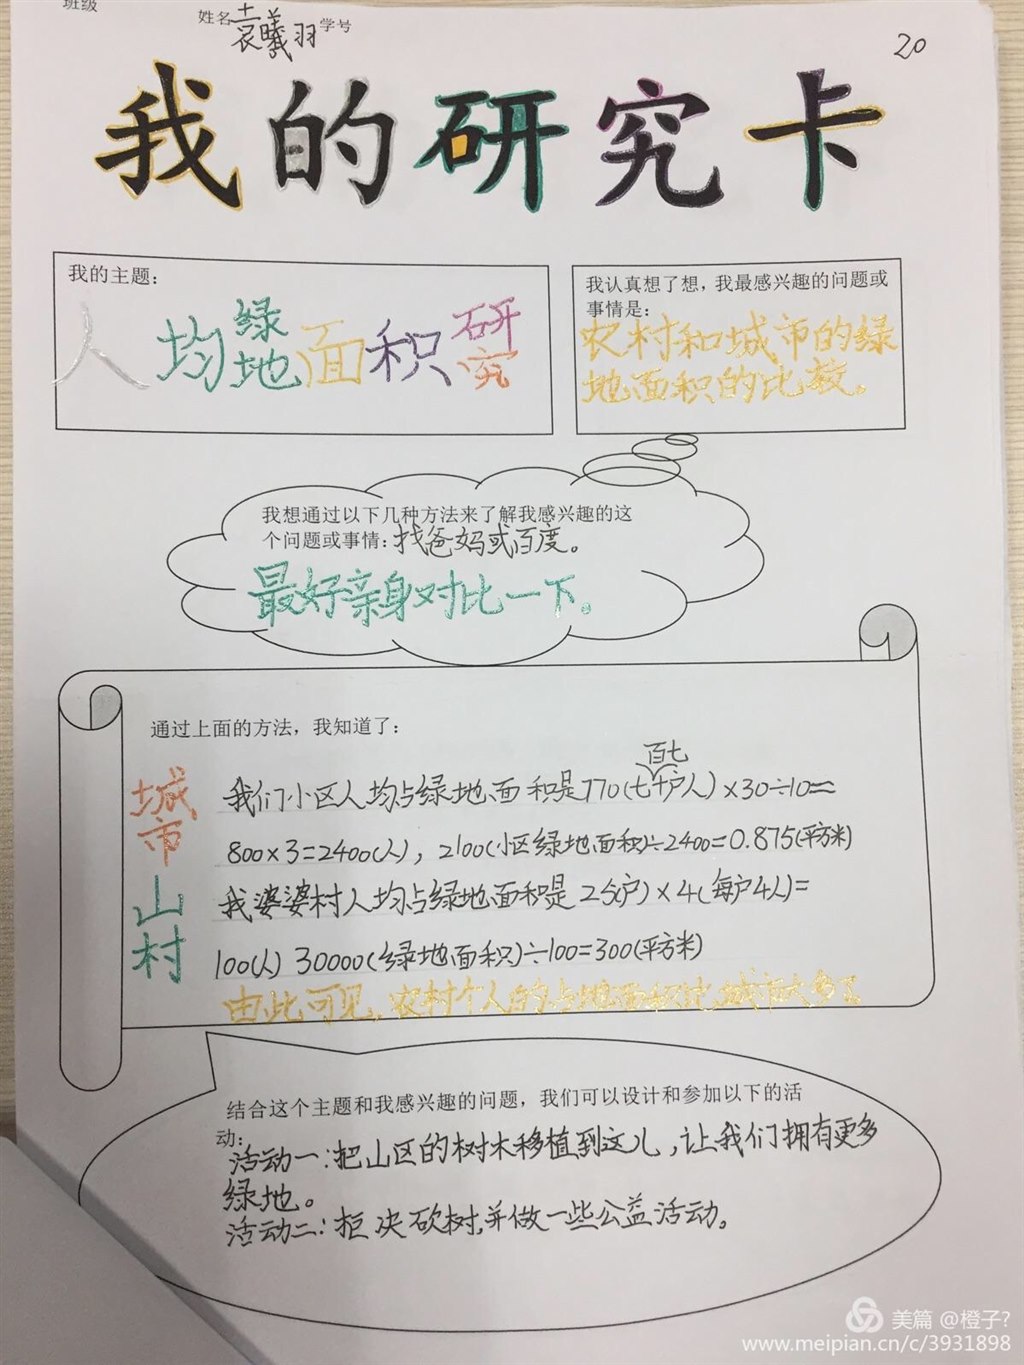 班级
姓名袁曦羽学号
20
我的研究卡
我的主题：
人均绿地面积研究
我认真想了想，我最感兴趣的问题或
事情是：
农村和城市的绿
地面积的比较。
我想通过以下几种方法来了解我感兴趣的这
个问题或事情：找爸妈或百度。
最好亲身对比一下。
通过上面的方法，我知道了：
城市
百七
我们小区人均占绿地面积是770(七十户人)×30÷10=
800×3=2400(人)，2100(小区绿地面积)÷2400=0.875(平方米)
山村
我婆婆村人均占绿地面积是25(户)×4(每户4人)=
100(人) 30000(绿地面积)÷100=300(平方米)
由此可见，农村个人的占地面积比城市大多了
结合这个主题和我感兴趣的问题，我们可以设计和参加以下的活
动：
活动一：把山区的树木移植到这儿，让我们拥有更多
绿地。
活动二：拒决砍树，并做一些公益活动。
美篇 @橙子?
www.meipian.cn/c/3931898